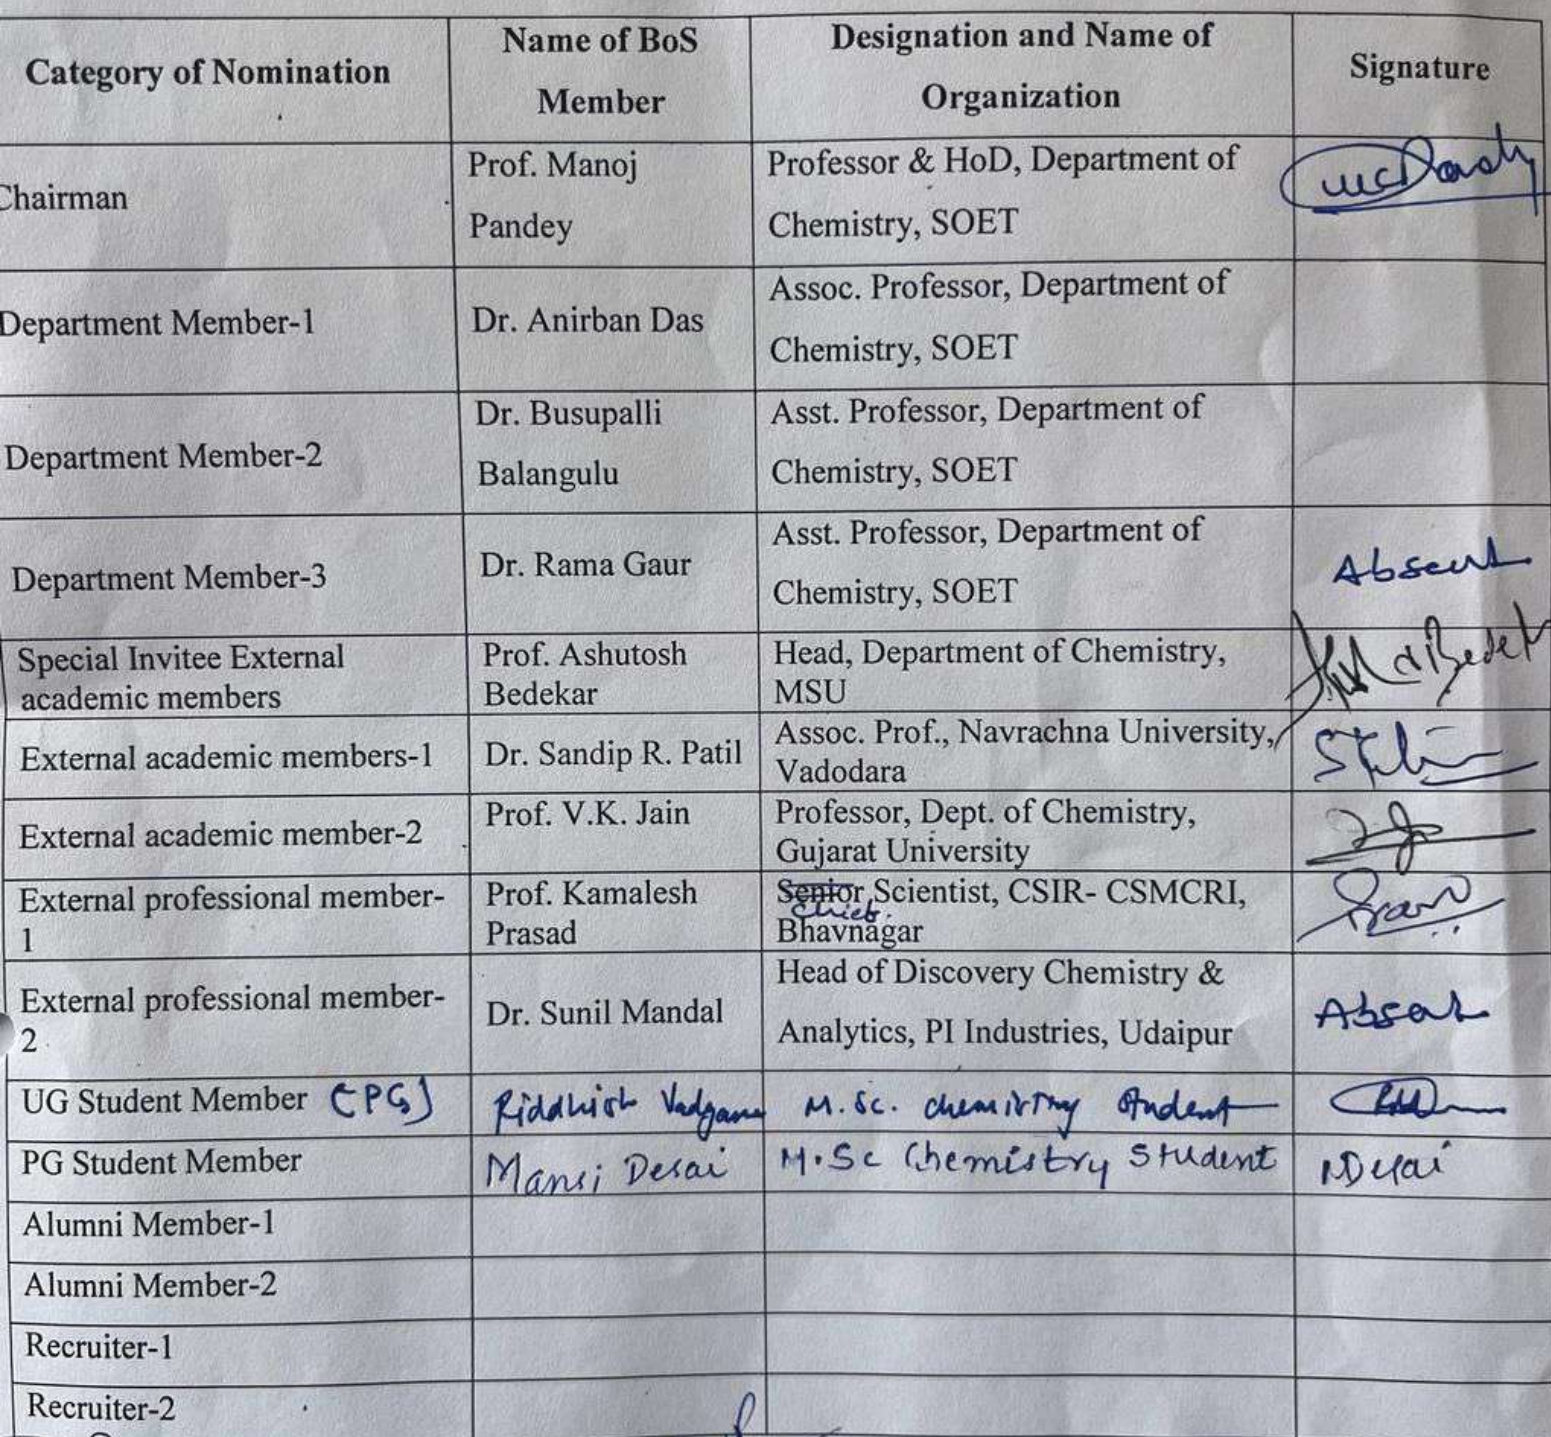 Category of Nomination
Name of BoS
Member
Designation and Name of
Organization
Signature
Chairman
Prof. Manoj
Pandey
Professor & HoD, Department of
Chemistry, SOET
Department Member-1
Dr. Anirban Das
Assoc. Professor, Department of
Chemistry, SOET
Department Member-2
Dr. Busupalli
Balangulu
Asst. Professor, Department of
Chemistry, SOET
Department Member-3
Dr. Rama Gaur
Asst. Professor, Department of
Chemistry, SOET
Absent
Special Invitee External
academic members
Prof. Ashutosh
Bedekar
Head, Department of Chemistry,
MSU
External academic members-1
Dr. Sandip R. Patil
Assoc. Prof., Navrachna University,
Vadodara
External academic member-2
Prof. V.K. Jain
Professor, Dept. of Chemistry,
Gujarat University
External professional member-
1
Prof. Kamalesh
Prasad
Senior Scientist, CSIR- CSMCRI,
Chief
Bhavnagar
External professional member-
2
Dr. Sunil Mandal
Head of Discovery Chemistry &
Analytics, PI Industries, Udaipur
Absent
UG Student Member (PG)
Riddhish
M.Sc. chemistry student
PG Student Member
Mansi Desai
M.Sc Chemistry Student
NDesai
Alumni Member-1
Alumni Member-2
Recruiter-1
Recruiter-2